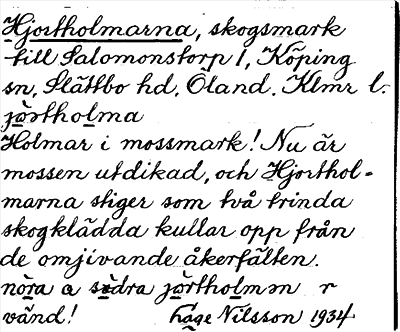 Hjortholmarna, skogsmark
till Salomonstorp 1, Köping
sn, Slättbo hd, Öland. Klmr l.
jo̊rtholma
Holmar i mossmark! Nu är
mossen utdikad, och Hjorthol-
marna stiger som två trinda
skogklädda kullar opp från
de omjivande åkerfälten.
nora a södra jortholmen r
vänd! Tage Nilsson 1934